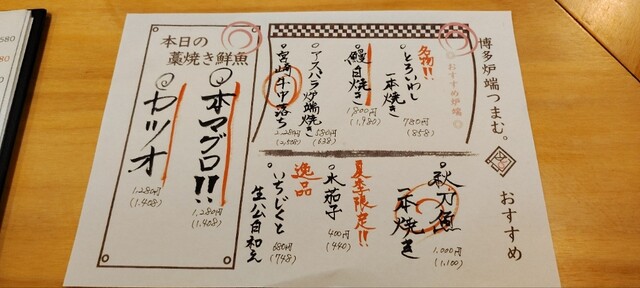 博多炉端つまむ。
おすすめ
おすすめ炉端
名物!!
とろいわし
一本焼き
780円
(858)
鰻
白焼き
1,800円
(1,980)
アスパラ炉端焼き
580円
(638)
宮崎牛中落ち
2,280円
(2,508)
秋刀魚
一本焼き
1,000円
(1,100)
夏季限定!!
水茄子
400円
(440)
逸品
いちじくと
生ハム白和え
680円
(748)
本日の
藁焼き鮮魚
本マグロ!!
1,280円
(1,408)
カツオ
1,280円
(1,408)
580